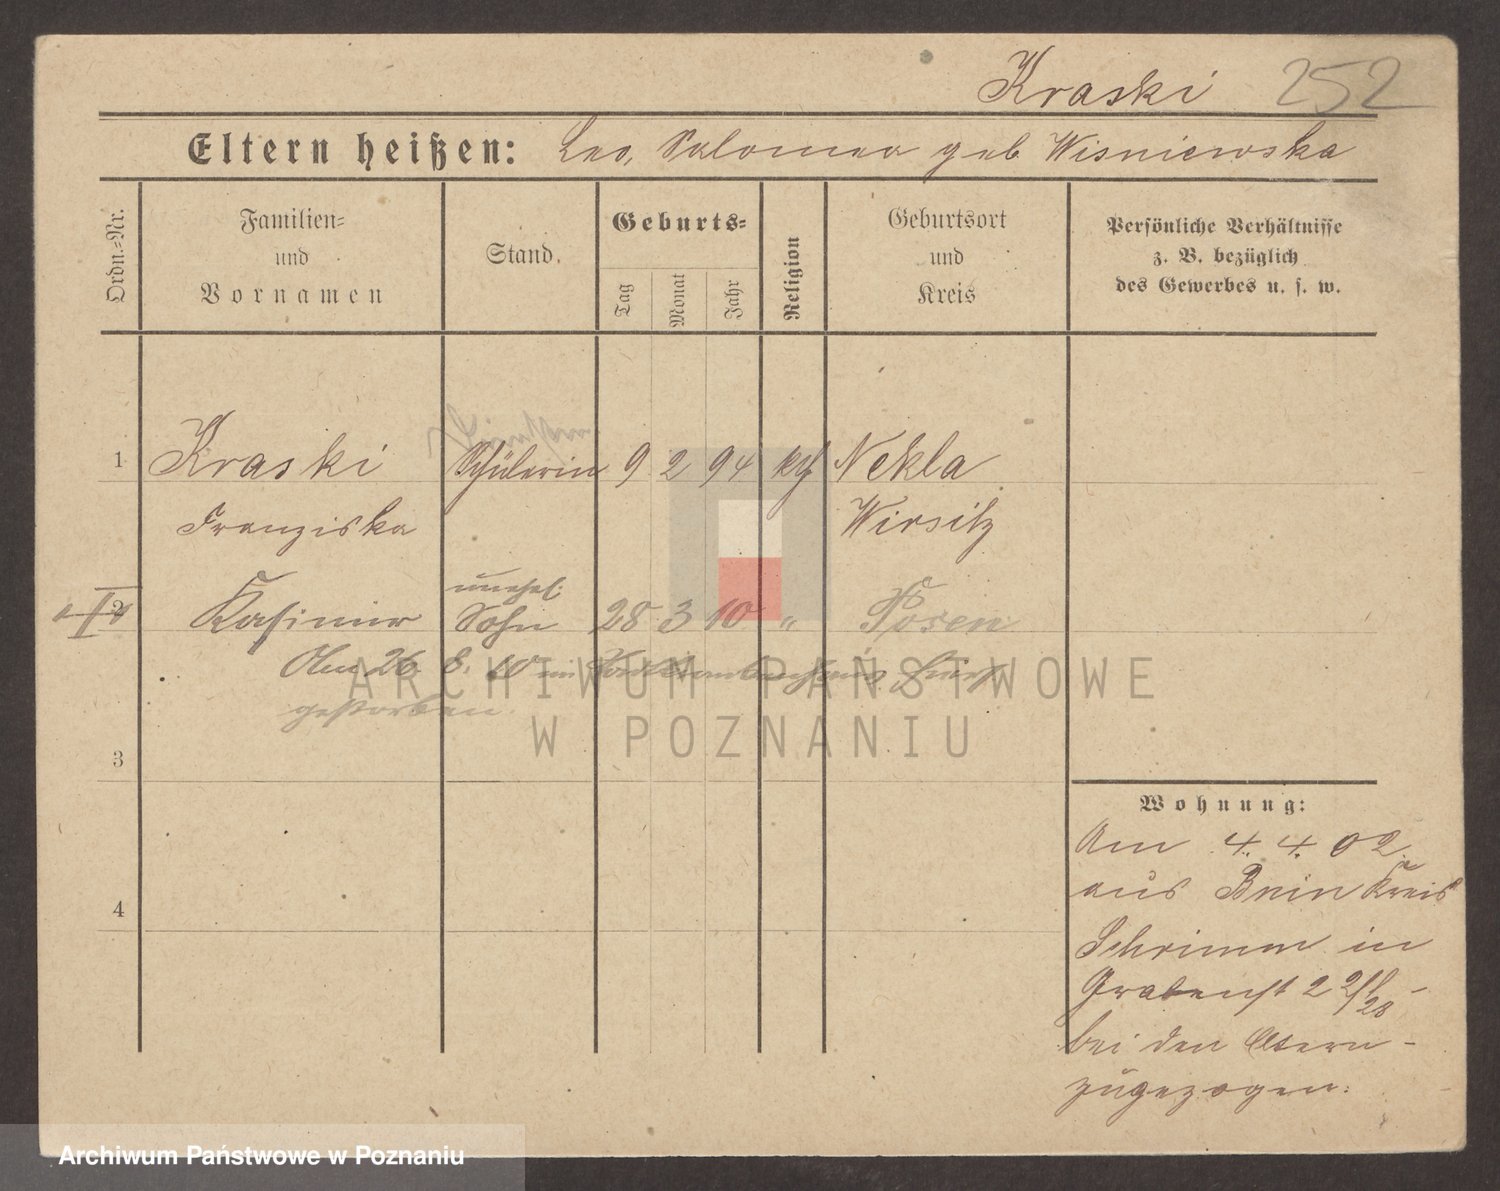 Kraski 252
Eltern heißen: Leo, Salomea geb Wisniewska
Ordn.-Nr.
Familien- und Vornamen
Stand.
Geburts-
Tag Monat Jahr
Religion
Geburtsort und Kreis
Persönliche Verhältnisse
z. B. bezüglich
des Gewerbes u. s. w.
1 Kraski Schülerin 9 2 94 kth Nekla
Franziska Wirsitz
unehel.
2 Kasimir Sohn 28 3 10 " Posen
Am 26. 8. 10 im Stadtkrankenhaus hier
gestorben.
ARCHIWUM PAŃSTWOWE
W POZNANIU
3
Wohnung:
Am 4. 4. 02
aus Bnin Kreis
4
Schrimm in
Grabenst 22/28
bei den Eltern
zugezogen.
Archiwum Państwowe w Poznaniu